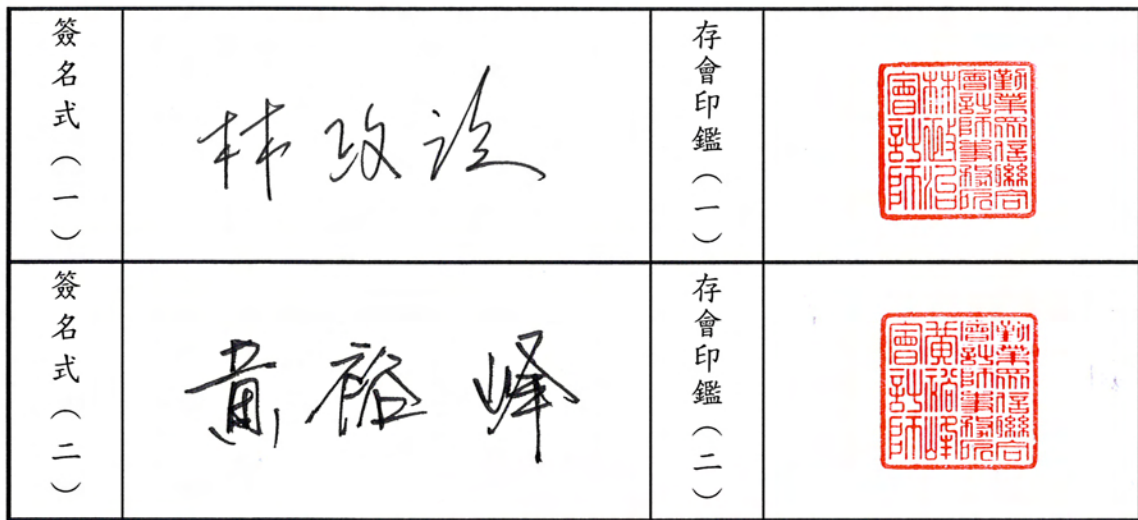 簽名式（一）
林政治
存會印鑑（一）
勤業眾信聯合
會計師事務所
林政治
會計師
簽名式（二）
黃裕峰
存會印鑑（二）
勤業眾信聯合
會計師事務所
黃裕峰
會計師